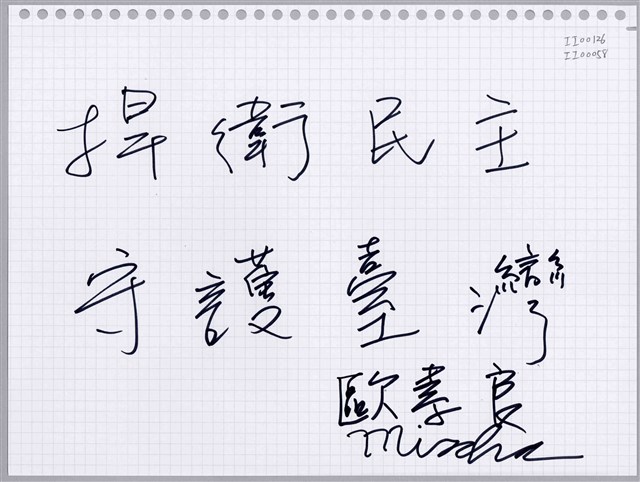 II00126
II00058
捍衛民主
守護臺灣
歐孝良
Mischa